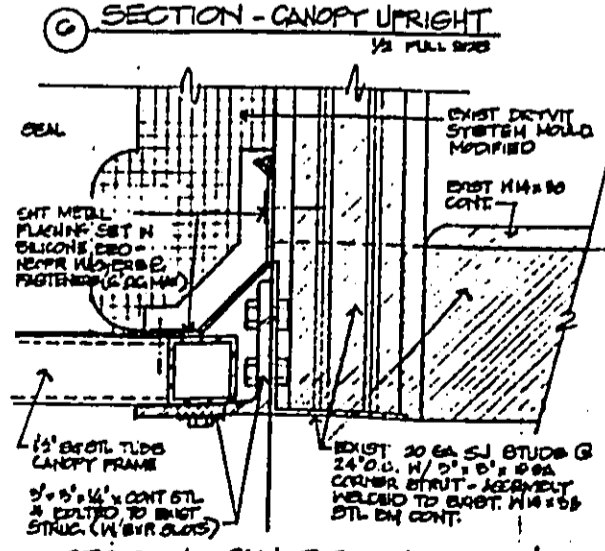 6 SECTION - CANOPY UPRIGHT
1/2 FULL SIZE
SEAL
EXIST DRYVIT
SYSTEM MOULD
MODIFIED
EXIST W14 x
CONT.
SHT METAL
FLASHING SET IN
SILICONE BED -
NEOPR WASHERS &
FASTENERS (6" OC MAX)
STL TUBE
CANOPY FRAME
3" x 3" x 1/4" x CONT STL
BOLTED TO EXIST
STRUC. (W/ EXP. SLOTS)
EXIST 20 GA SJ STUDS @
24" O.C. W/
CORNER STRUT - ASSEMBLY
WELDED TO EXIST. W14 x
STL BM CONT.